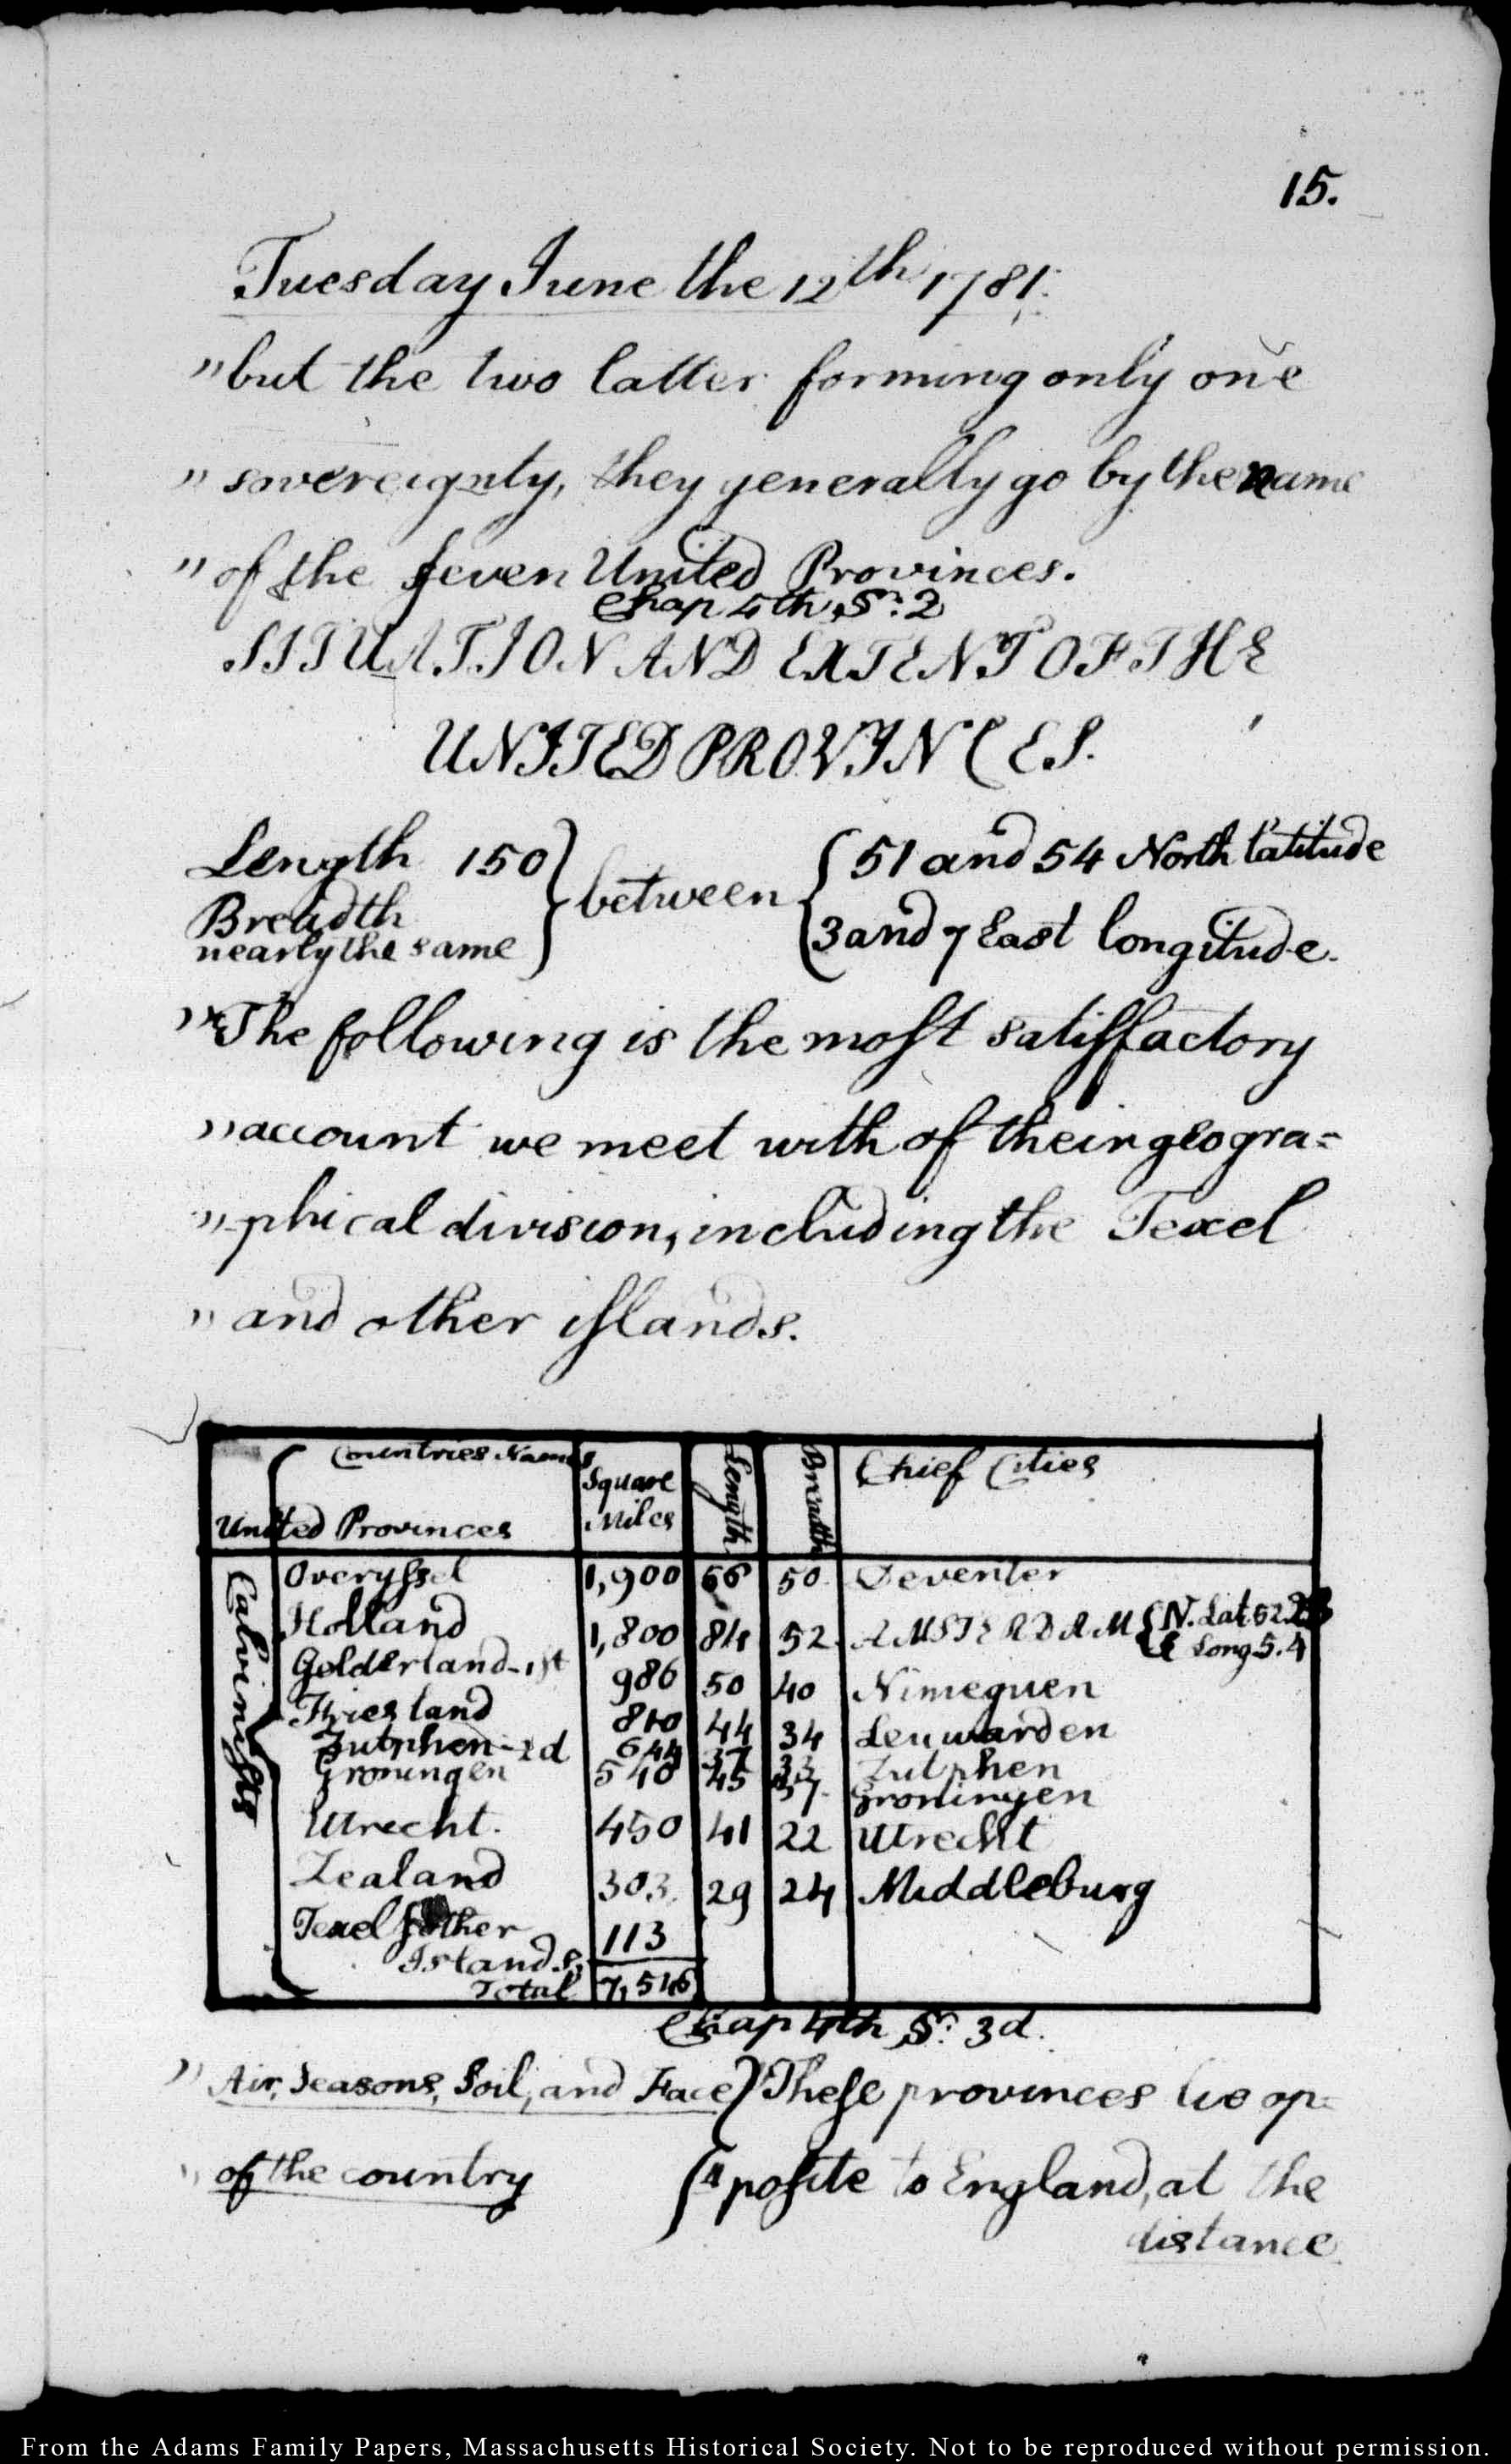 15.
Tuesday June the 12th 1781.
"but the two latter forming only one
"sovereignty, they generally go by the name
"of the seven United Provinces.
Chap 4th Sn: 2
SITUATION AND EXTENT OF THE
UNITED PROVINCES.
Length 150 } between { 51 and 54 North latitude
Breadth
nearly the same } { 3 and 7 East longitude.
"The following is the most satisfactory
"account we meet with of their geogra=
"phical division, including the Texel
"and other islands.
Countries Names Square Miles Length Breadth Chief Cities
United Provinces
Calvinists
Overyssel 1,900 50 Deventer
Holland 1,800 84 52 AMSTERDAM { N. Lat. 52.
E Long 5.4
Gelderland-1st 986 50 40 Nimeguen
Friesland 810 44 34 Leuwarden
Zutphen-2d 644 37 33 Zutphen
Groningen 540 45 37 Groningen
Utrecht. 450 41 22 Utrecht
Zealand 303. 29 24 Middleburg
Texel & other
Islands. 113
Total 7,546
Chap 4th Sn: 3d.
"Air, Seasons, Soil, and Face } These provinces lie op=
"of the country { posite to England, at the
distance
From the Adams Family Papers, Massachusetts Historical Society. Not to be reproduced without permission.